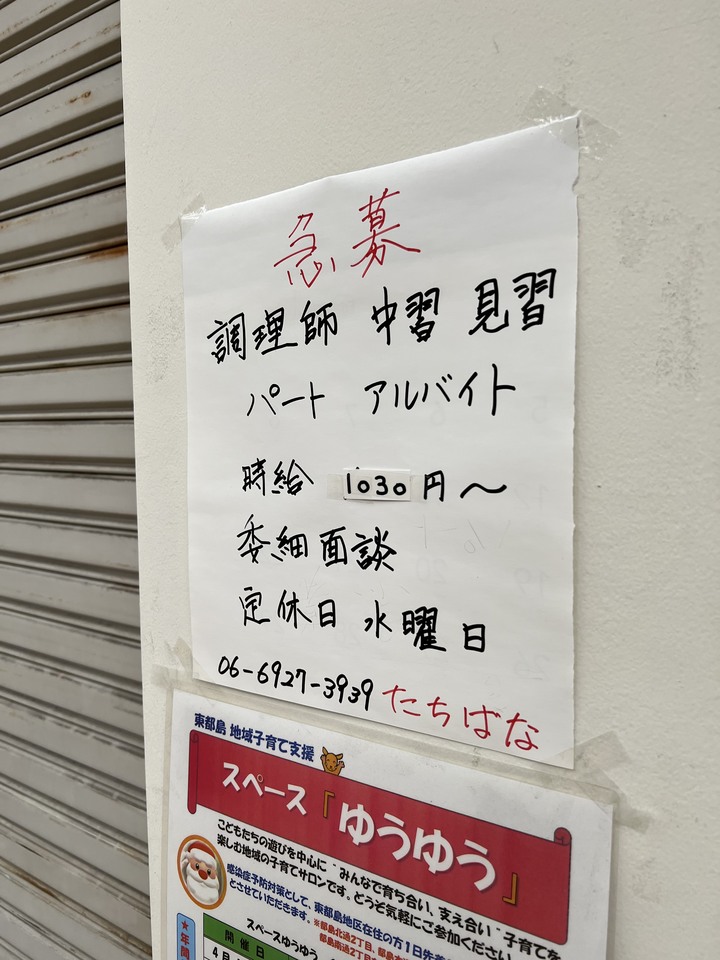 急募
調理師 中習 見習
パート アルバイト
時給 1030円～
委細面談
定休日 水曜日
06-6927-3939 たちばな
東都島 地域子育て支援
スペース「ゆうゆう」
こどもたちの遊びを中心に“みんなで育ち合い、支え合い”子育てを
楽しむ地域の子育てサロンです。どうぞ気軽にご参加ください
感染症予防対策として、東都島地区在住の方1日先着
とさせていただきます。※都島北通2丁目、都島
都島南通2丁目
★年間
スペースゆうゆう
開催日
4月